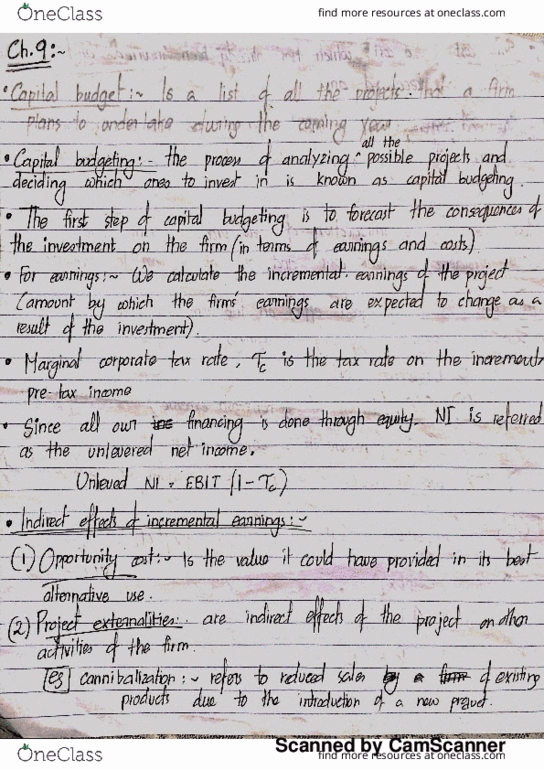 OneClass
find more resources at oneclass.com
Ch.9:~
• Capital budget:~ Is a list of all the projects that a firm
plans to undertake during the coming year
all the
• Capital budgeting:- the process of analyzing ^ possible projects and
deciding which ones to invest in is known as capital budgeting.
• The first step of capital budgeting is to forecast the consequences of
the investment on the firm (in terms of earnings and costs)
• For earnings:~ We calculate the incremental earnings of the project
(amount by which the firms' earnings are expected to change as a
result of the investment).
• Marginal corporate tax rate, Tc is the tax rate on the increment
pre-tax income
• Since all own financing is done through equity. NI is referred
as the unlevered net income.
Unleved NI = EBIT (1-Tc)
• Indirect effects of incremental earnings:~
(1) Opportunity cost:~ Is the value it could have provided in its best
alternative use.
(2) Project externalities:. are indirect effects of the project on other
activities of the firm.
eg cannibalization:~ refers to reduced sales by a firm of existing
products due to the introduction of a new product.
Scanned by CamScanner
OneClass
find more resources at oneclass.com